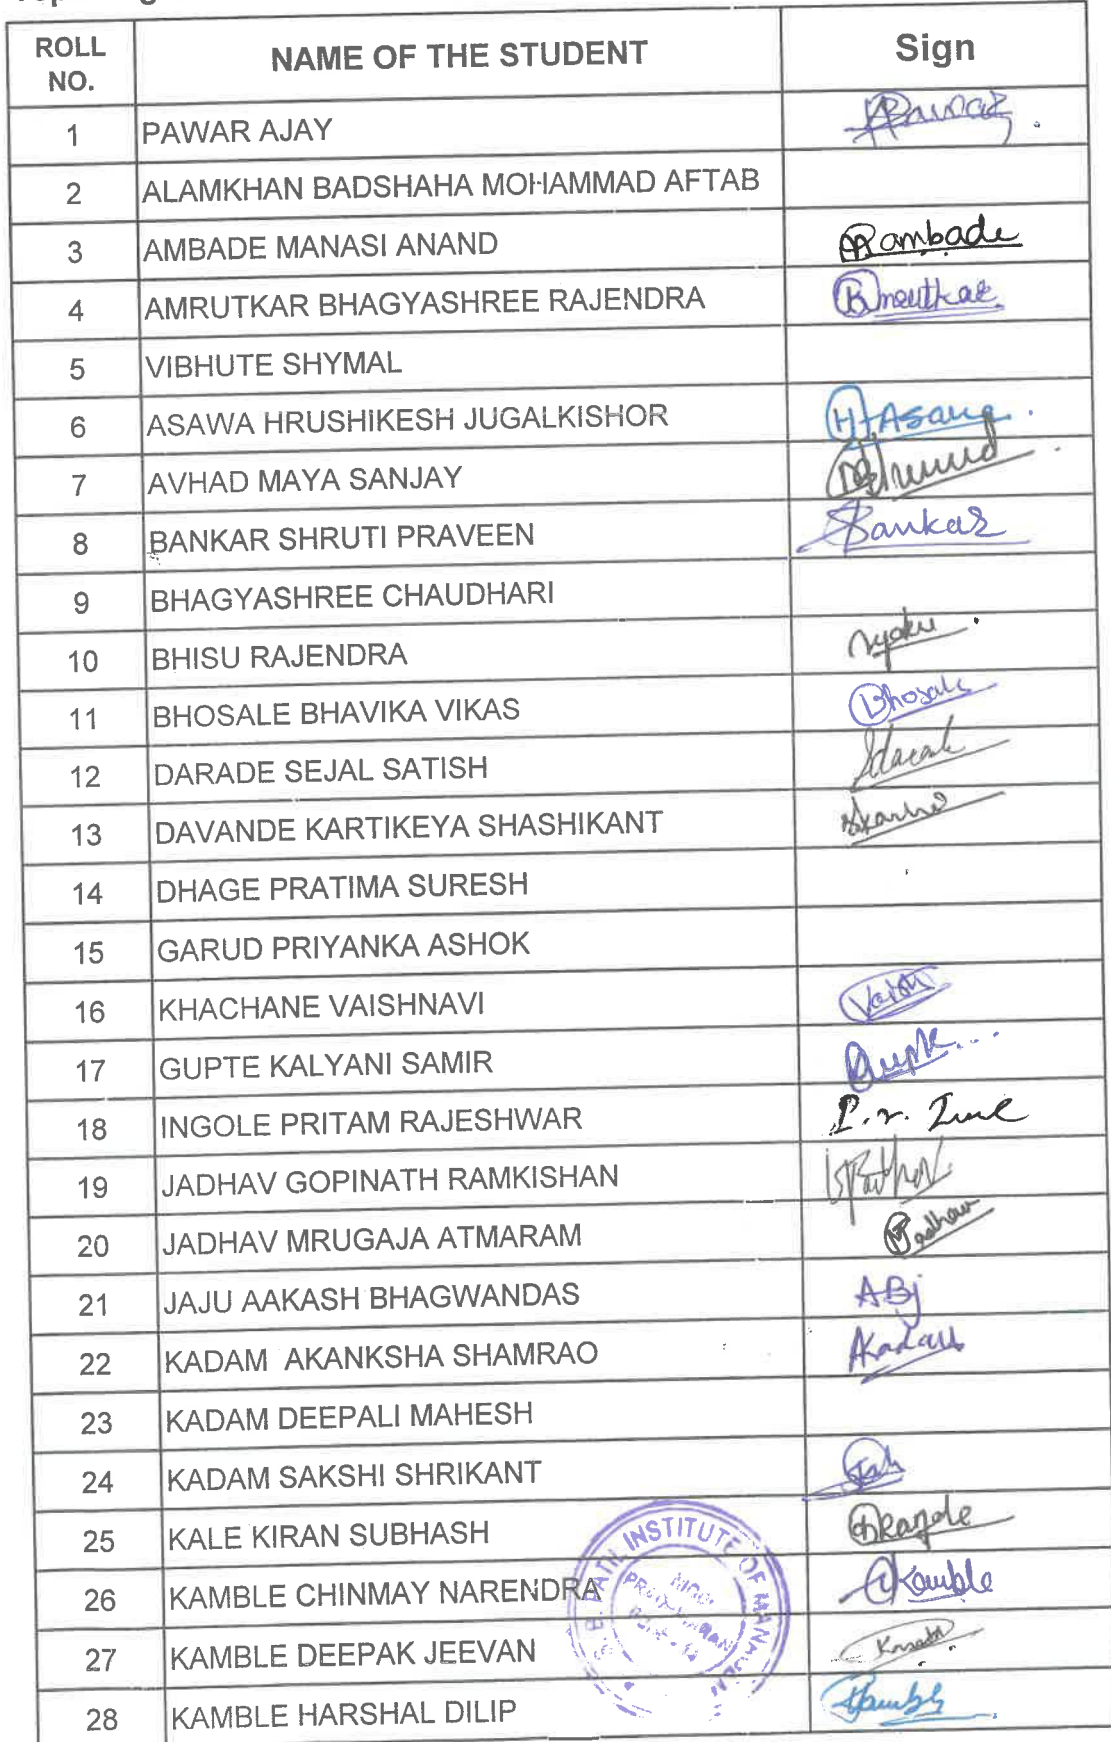 ROLL NO. NAME OF THE STUDENT Sign
1 PAWAR AJAY
2 ALAMKHAN BADSHAHA MOHAMMAD AFTAB
3 AMBADE MANASI ANAND Rambade
4 AMRUTKAR BHAGYASHREE RAJENDRA
5 VIBHUTE SHYMAL
6 ASAWA HRUSHIKESH JUGALKISHOR
7 AVHAD MAYA SANJAY
8 BANKAR SHRUTI PRAVEEN Bankar
9 BHAGYASHREE CHAUDHARI
10 BHISU RAJENDRA
11 BHOSALE BHAVIKA VIKAS Bhosale
12 DARADE SEJAL SATISH
13 DAVANDE KARTIKEYA SHASHIKANT
14 DHAGE PRATIMA SURESH
15 GARUD PRIYANKA ASHOK
16 KHACHANE VAISHNAVI Vaish
17 GUPTE KALYANI SAMIR
18 INGOLE PRITAM RAJESHWAR
19 JADHAV GOPINATH RAMKISHAN
20 JADHAV MRUGAJA ATMARAM
21 JAJU AAKASH BHAGWANDAS ABj
22 KADAM AKANKSHA SHAMRAO AKadam
23 KADAM DEEPALI MAHESH
24 KADAM SAKSHI SHRIKANT
25 KALE KIRAN SUBHASH
26 KAMBLE CHINMAY NARENDRA Kamble
27 KAMBLE DEEPAK JEEVAN
28 KAMBLE HARSHAL DILIP
B. PATIL INSTITUTE OF MANAGEM